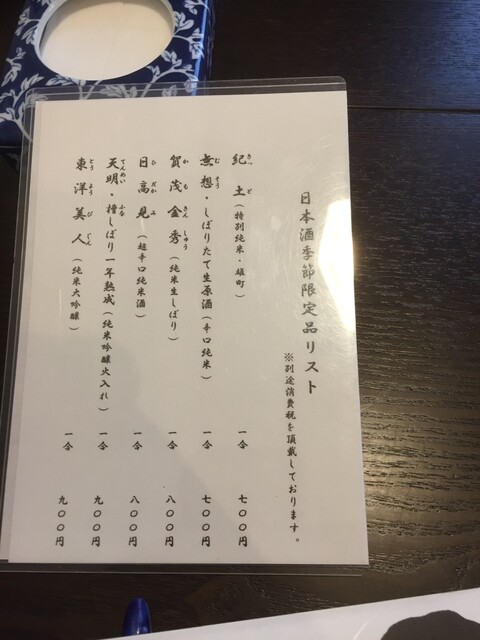 日本酒季節限定品リスト
※別途消費税を頂戴しております。
紀土(特別純米・雄町) 一合 七〇〇円
無想・しぼりたて生原酒(辛口純米) 一合 七〇〇円
賀茂金秀(純米生しぼり) 一合 八〇〇円
日高見(超辛口純米酒) 一合 八〇〇円
天明・槽しぼり一年熟成(純米吟醸火入れ) 一合 九〇〇円
東洋美人(純米大吟醸) 一合 九〇〇円